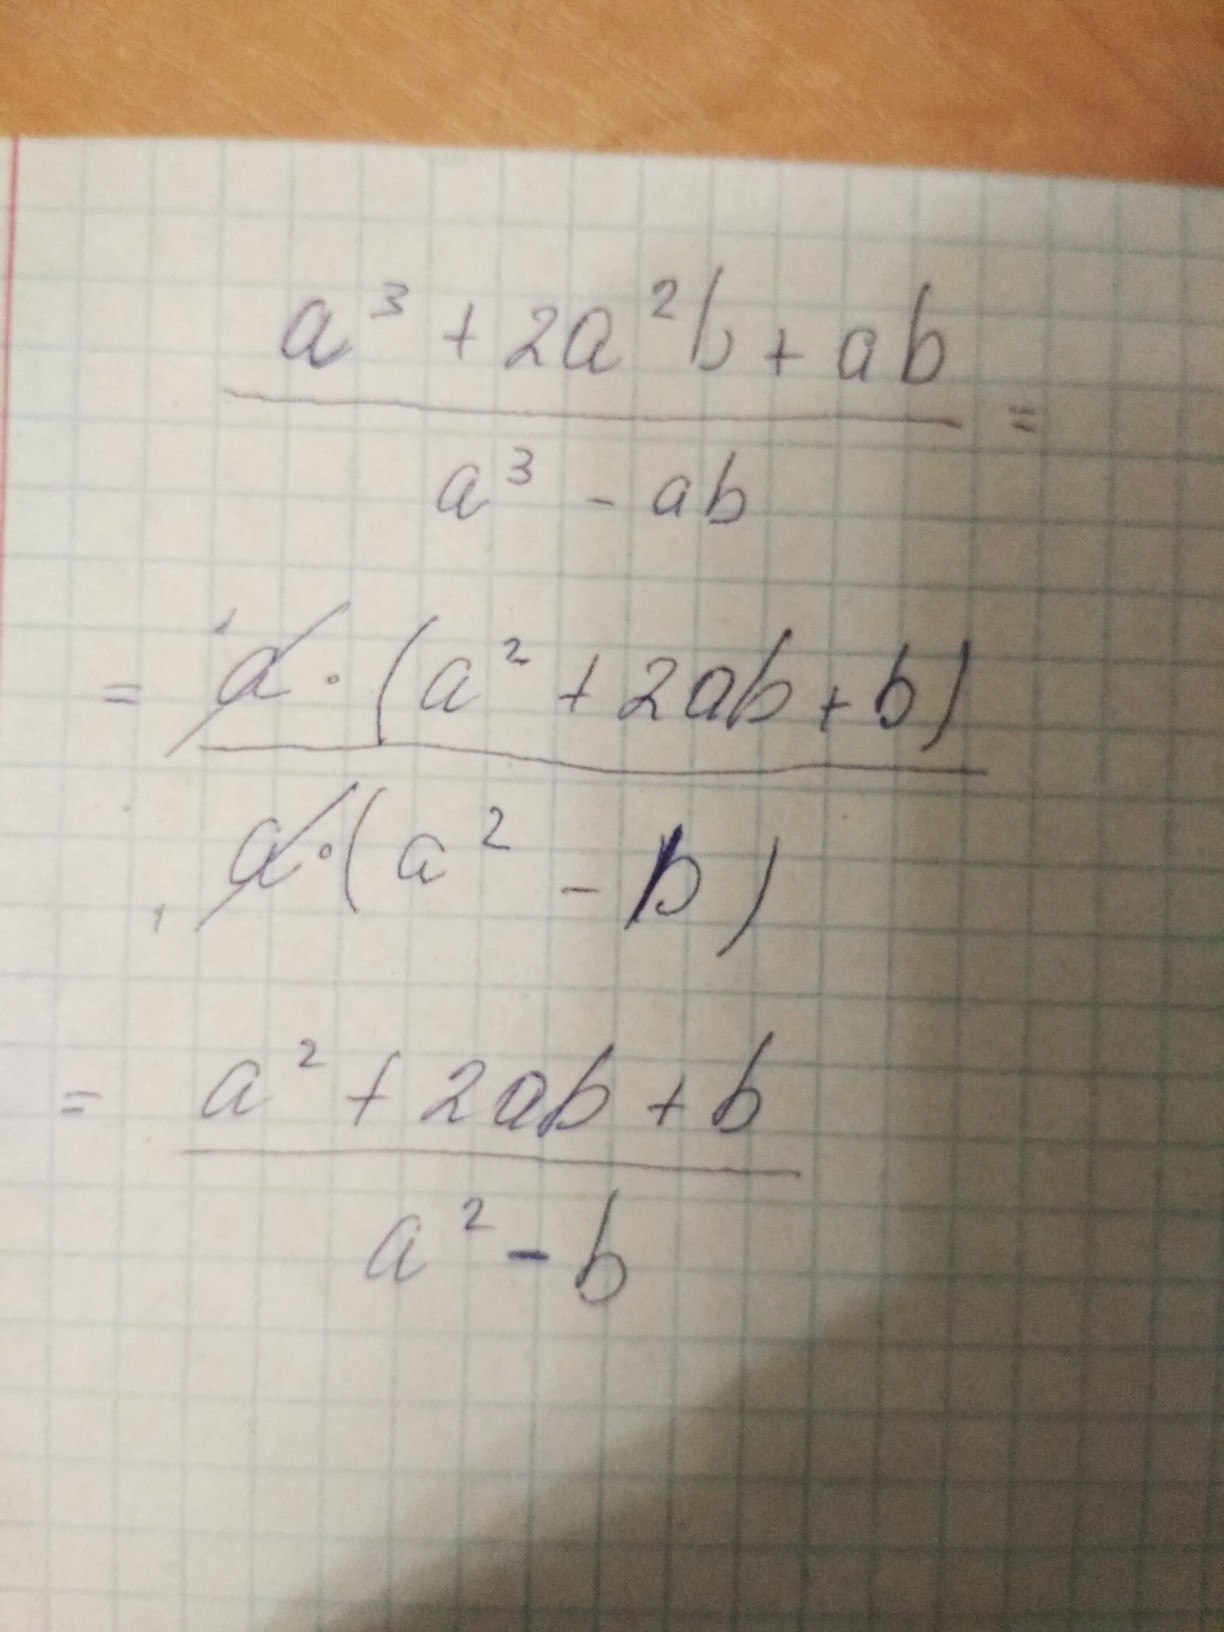 a³ + 2a²b + ab =
a³ - ab
= a · (a² + 2ab + b)
a · (a² - b)
= a² + 2ab + b
a² - b